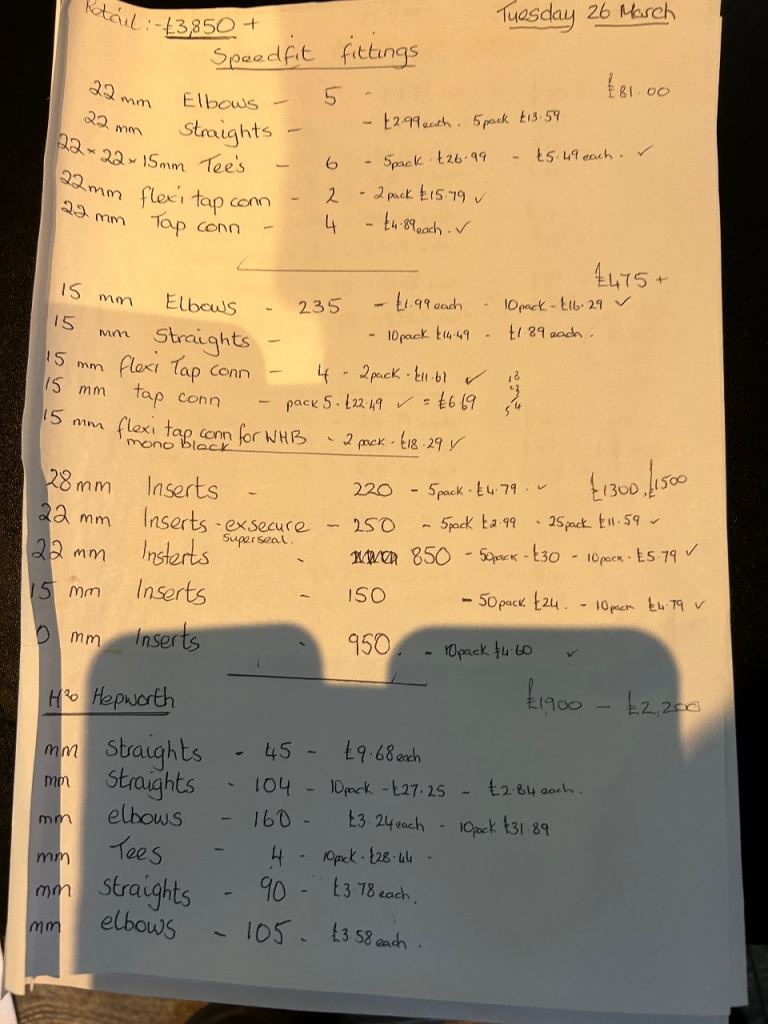 Retail :- £3,850 +
Tuesday 26 March
Speedfit fittings
22mm Elbows - 5 - £81.00
22 mm Straights - - £2.99 each. 5pack £13.59
22 x 22 x 15mm Tee's - 6 - 5pack £26.99 - £5.49 each. ✓
22mm flexi tap conn - 2 - 2pack £15.79 ✓
22 mm Tap conn - 4 - £4.89 each. ✓
£475 +
15 mm Elbows - 235 - £1.99 each - 10pack - £16.29 ✓
15 mm Straights - - 10pack £14.49 - £1.89 each.
15 mm flexi Tap conn - 4 - 2pack - £11.61 ✓
15 mm tap conn - pack 5 - £22.49 ✓ = £6.69
15 mm flexi tap conn for WHB - 2 pack - £18.29 ✓
mono black
28mm Inserts - 220 - 5pack - £4.79 . ✓ £1300, £1500
22 mm Inserts - exsecure - 250 - 5pack £2.99 - 25pack £11.59 ✓
superseal.
22 mm Insterts - 850 - 50pack - £30 - 10pack - £5.79 ✓
15 mm Inserts - 150 - 50pack £24. - 10pack £4.79 ✓
0 mm Inserts - 950. - 10pack £4.60 ✓
H20 Hepworth £1,900 - £2,200
mm Straights - 45 - £9.68 each
mm Straights - 104 - 10pack - £27.25 - £2.84 each.
mm elbows - 160 - £3.24 each - 10pack £31.89
mm Tees - 4 - 10pck - £28.44 -
mm straights - 90 - £3.78 each.
mm elbows - 105 - £3.58 each.